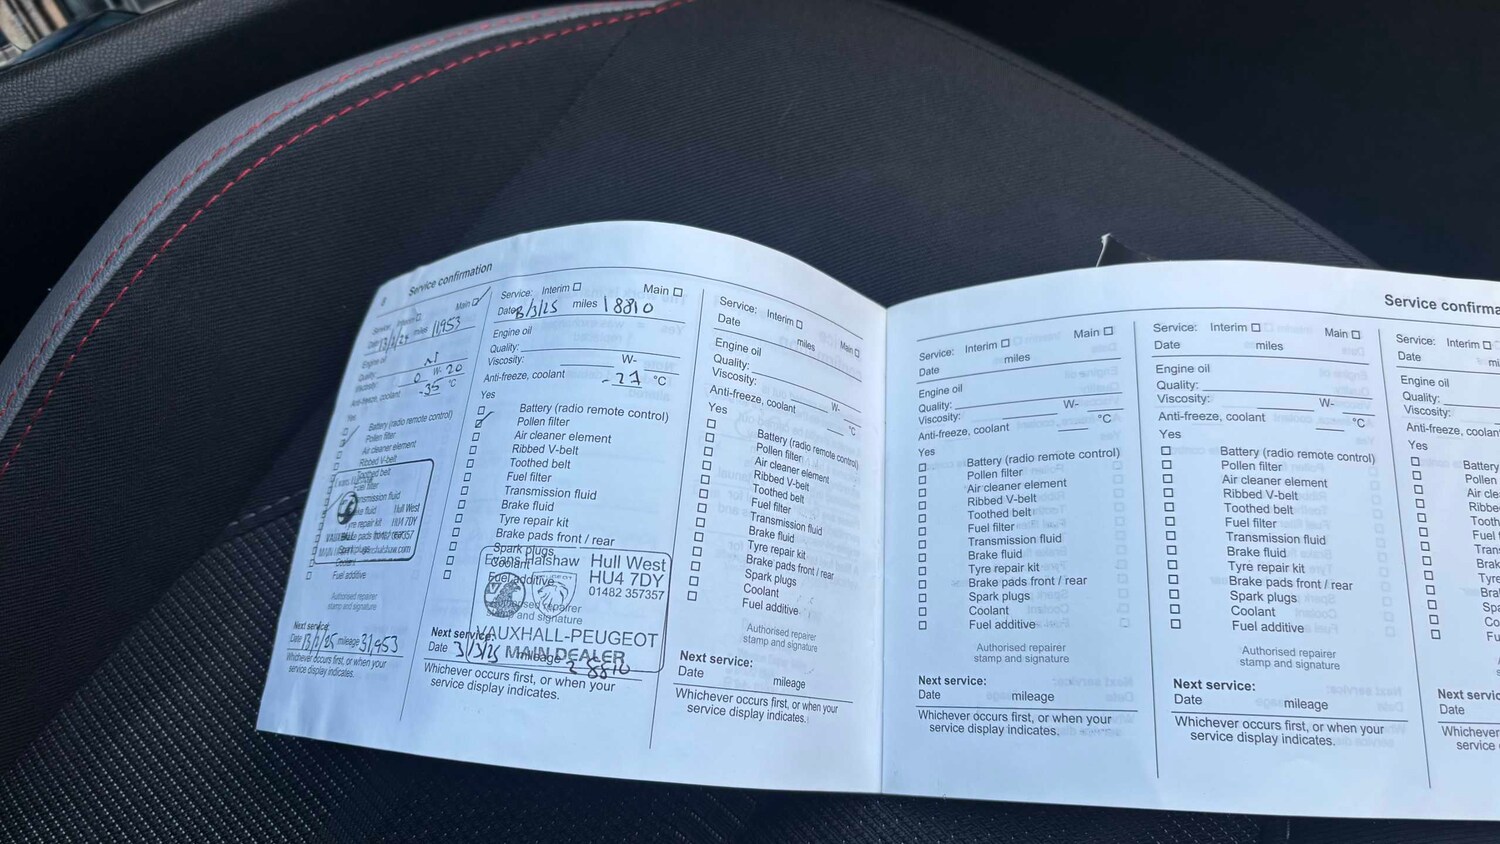 8 Service confirmation
Service: Interim Main
Date 13/2/24 miles 11,953
Engine oil
Quality:
Viscosity: 0 W- 20
Anti-freeze, coolant -35 °C
Yes
Battery (radio remote control)
Pollen filter
Air cleaner element
Ribbed V-belt
Toothed belt
Fuel filter
Transmission fluid
Brake fluid Hull West
Tyre repair kit HU4 7DY
Brake pads front / rear 01482 357357
Spark plugs
Coolant
Fuel additive
Authorised repairer
stamp and signature
Next service:
Date 13/2/25 mileage 31,953
Whichever occurs first, or when your
service display indicates.
Service: Interim Main
Date 3/3/25 miles 18810
Engine oil
Quality:
Viscosity: W-
Anti-freeze, coolant -27 °C
Yes
Battery (radio remote control)
Pollen filter
Air cleaner element
Ribbed V-belt
Toothed belt
Fuel filter
Transmission fluid
Brake fluid
Tyre repair kit
Brake pads front / rear
Spark plugs
Coolant
Fuel additive
Authorised repairer
stamp and signature
Evans Halshaw Hull West
HU4 7DY
01482 357357
VAUXHALL-PEUGEOT
MAIN DEALER
Next service:
Date 3/3/25 mileage 28810
Whichever occurs first, or when your
service display indicates.
Service: Interim Main
Date miles
Engine oil
Quality:
Viscosity: W-
Anti-freeze, coolant °C
Yes
Battery (radio remote control)
Pollen filter
Air cleaner element
Ribbed V-belt
Toothed belt
Fuel filter
Transmission fluid
Brake fluid
Tyre repair kit
Brake pads front / rear
Spark plugs
Coolant
Fuel additive
Authorised repairer
stamp and signature
Next service:
Date mileage
Whichever occurs first, or when your
service display indicates.
Service confirma
Service: Interim Main
Date miles
Engine oil
Quality:
Viscosity: W-
Anti-freeze, coolant °C
Yes
Battery (radio remote control)
Pollen filter
Air cleaner element
Ribbed V-belt
Toothed belt
Fuel filter
Transmission fluid
Brake fluid
Tyre repair kit
Brake pads front / rear
Spark plugs
Coolant
Fuel additive
Authorised repairer
stamp and signature
Next service:
Date mileage
Whichever occurs first, or when your
service display indicates.
Service: Interim Main
Date miles
Engine oil
Quality:
Viscosity: W-
Anti-freeze, coolant °C
Yes
Battery (radio remote control)
Pollen filter
Air cleaner element
Ribbed V-belt
Toothed belt
Fuel filter
Transmission fluid
Brake fluid
Tyre repair kit
Brake pads front / rear
Spark plugs
Coolant
Fuel additive
Authorised repairer
stamp and signature
Next service:
Date mileage
Whichever occurs first, or when your
service display indicates.
Service: Interim
Date mi
Engine oil
Quality:
Viscosity:
Anti-freeze, coolant
Yes
Battery
Pollen
Air cle
Ribbe
Tooth
Fuel
Tran
Brak
Tyre
Bra
Spa
Co
Fu
Next servic
Date
Whichever
service